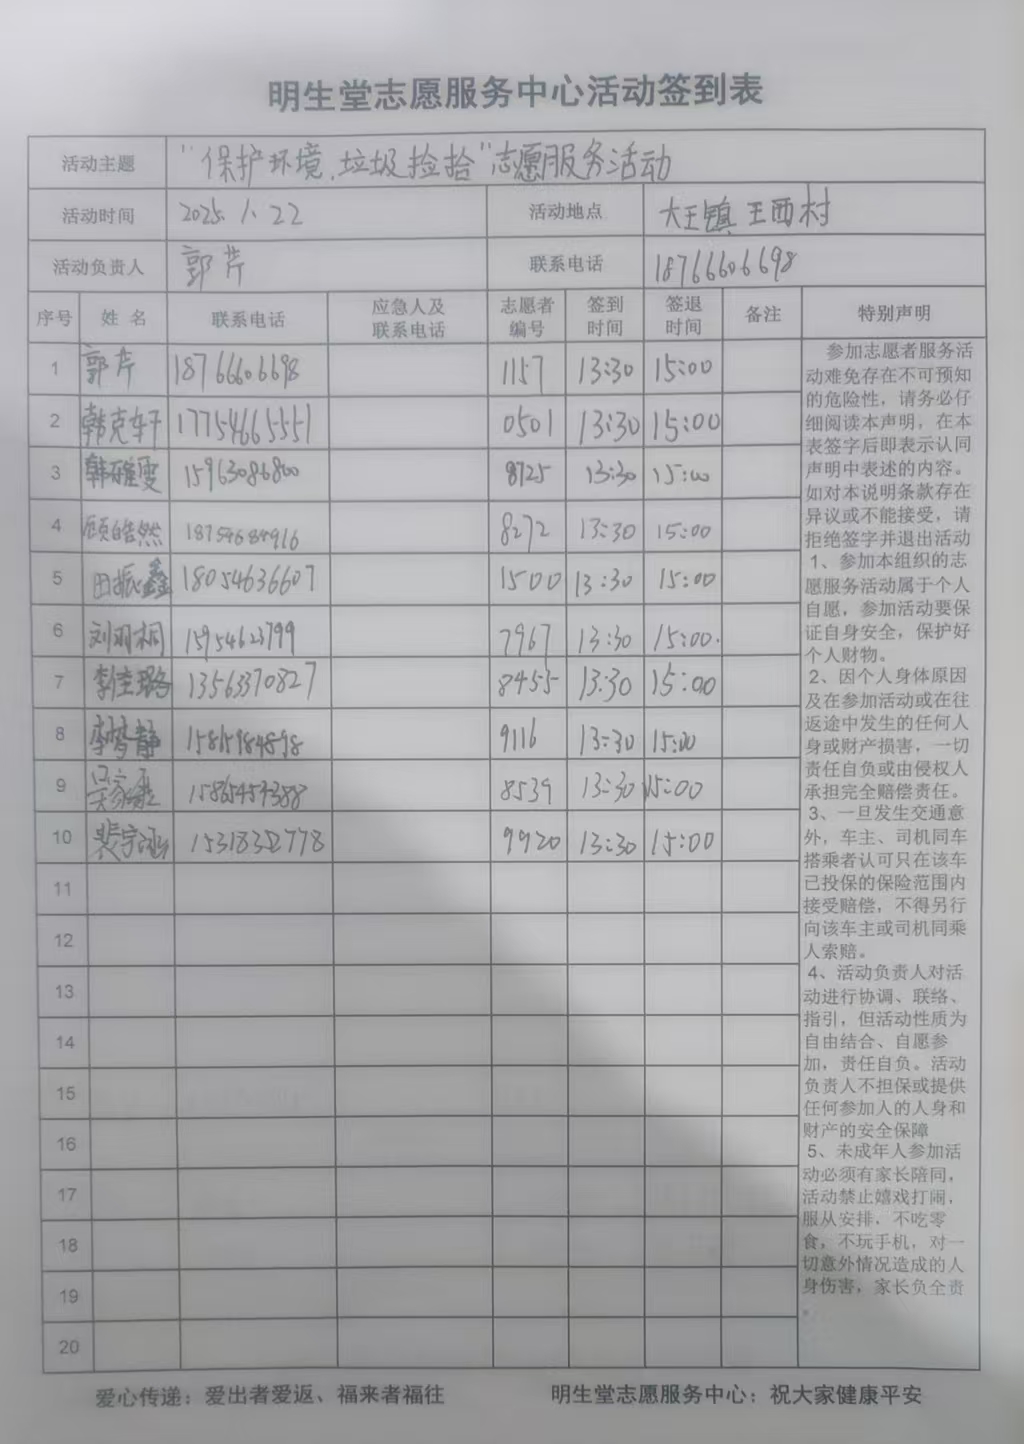 明生堂志愿服务中心活动签到表
活动主题 “保护环境、垃圾捡拾”志愿服务活动
活动时间 2025.1.22 活动地点 大王镇王西村
活动负责人 郭芹 联系电话 18766606698
序号 姓名 联系电话 应急人及联系电话 志愿者编号 签到时间 签退时间 备注 特别声明
1 郭芹 18766606698 1157 13:30 15:00
2 韩克轩 17754665551 0501 13:30 15:00
3 韩雅雯 15963086800 8725 13:30 15:00
4 顾皓然 18754684916 8272 13:30 15:00
5 田振鑫 18054636607 1500 13:30 15:00
6 刘羽桐 15954623799 7967 13:30 15:00.
7 李佳璐 13563370827 8455 13:30 15:00
8 李梦静 15865984898 9116 13:30 15:00
9 吴家 15865454388 8539 13:30 15:00
10 裴宇涵 15318322778 9920 13:30 15:00
11
12
13
14
15
16
17
18
19
20
参加志愿者服务活
动难免存在不可预知
的危险性，请务必仔
细阅读本声明，在本
表签字后即表示认同
声明中表述的内容。
如对本说明条款存在
异议或不能接受，请
拒绝签字并退出活动
1、参加本组织的志
愿服务活动属于个人
自愿，参加活动要保
证自身安全，保护好
个人财物。
2、因个人身体原因
及在参加活动或在往
返途中发生的任何人
身或财产损害，一切
责任自负或由侵权人
承担完全赔偿责任。
3、一旦发生交通意
外，车主、司机同车
搭乘者认可只在该车
已投保的保险范围内
接受赔偿，不得另行
向该车主或司机同乘
人索赔。
4、活动负责人对活
动进行协调、联络、
指引，但活动性质为
自由结合、自愿参
加，责任自负。活动
负责人不担保或提供
任何参加人的人身和
财产的安全保障
5、未成年人参加活
动必须有家长陪同，
活动禁止嬉戏打闹，
服从安排，不吃零
食，不玩手机，对一
切意外情况造成的人
身伤害，家长负全责
。
爱心传递：爱出者爱返、福来者福往 明生堂志愿服务中心：祝大家健康平安